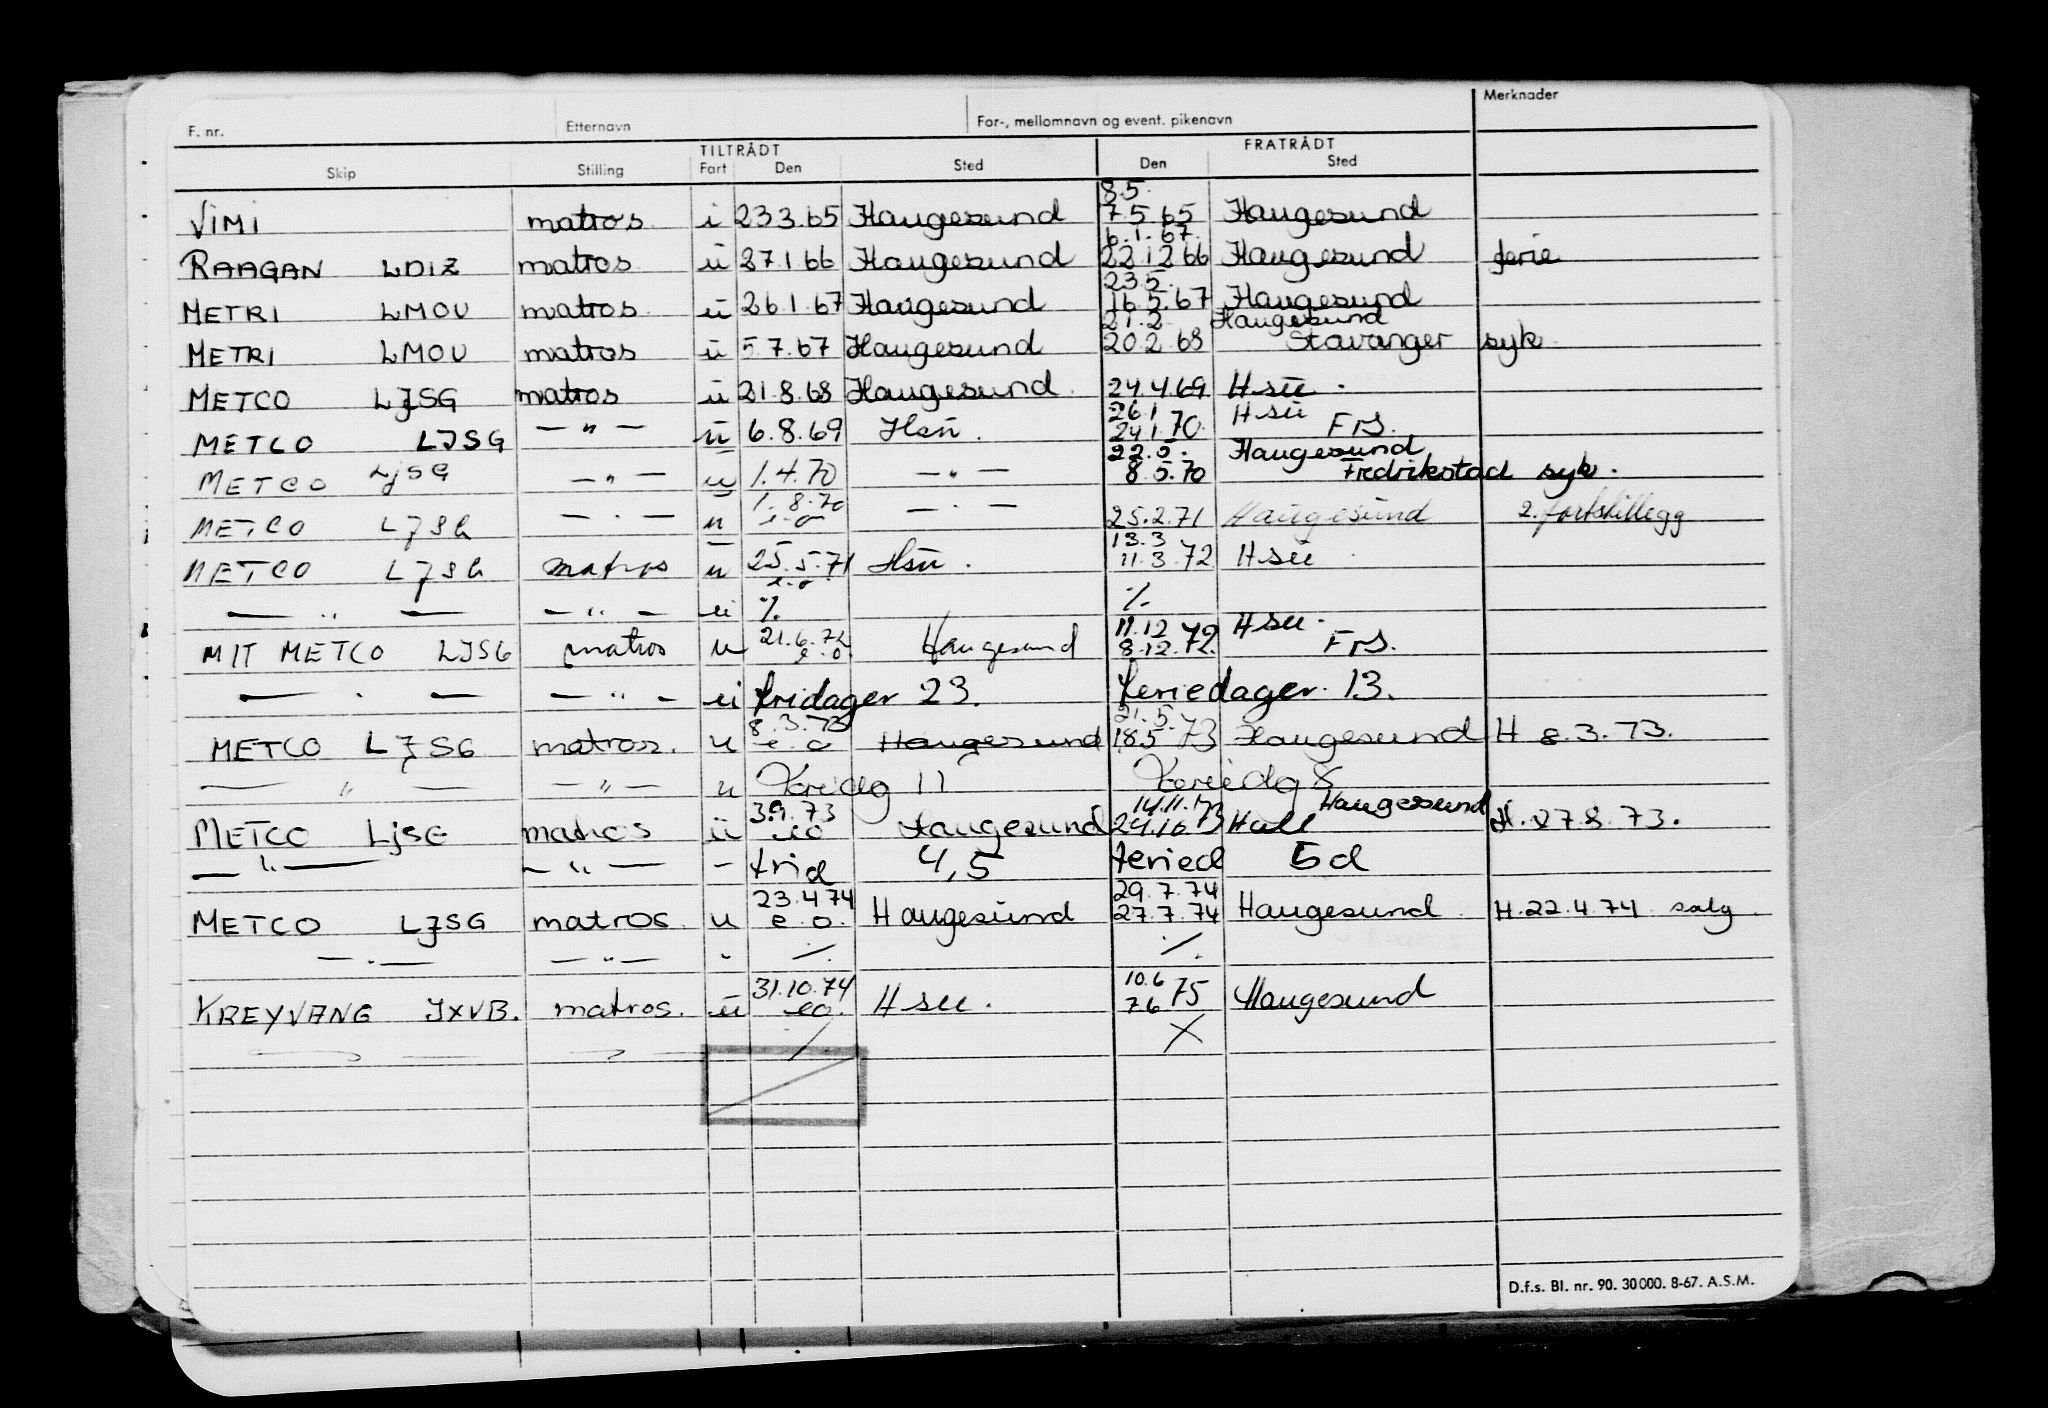 F. nr. Etternavn For-, mellomnavn og event. pikenavn Merknader
TILTRÅDT FRATRÅDT
Skip Stilling Fart Den Sted Den Sted
8.5.
VIMI matros i 23.3.65 Haugesund 7.5.65 Haugesund
6.1.67.
RAAGAN LDIZ matros ü 27.1 66 Haugesund 22.12 66 Haugesund ferie
23.5.
METRI LMOU matros ü 26.1.67 Haugesund 16.5.67 Haugesund
21.2 Haugesund
METRI LMOU matros ü 5.7.67 Haugesund 20.2.68 Stavanger syk
METCO LJSG matros ü 21.8.68 Haugesund 24.4.69 Hsu.
26.1 Hsu
METCO LJSG — " — ü 6.8.69 Hsu. 24.1.70 FrS.
22.5. Haugesund
METCO LJSG — " — u 1.4.70 — " — 8.5.70 Fredrikstad syk.
1.8.70
METCO LJSG — " — u e.o — " — 25.2.71 Haugesund 2. fartstillegg
13.3
METCO LJSG matros u 25.5.71 Hsu. 11.3.72 Hsu
e.o.
— " — — " — ui ⁒ ⁒
21.6.72 11.12 Hsu.
MIT METCO LJSG matros u e.o. Haugesund 8.12.72. FrS.
— " — — " — ui fridager 23. feriedager 13.
8.3.73 21.5.
METCO LJSG matros. u e o Haugesund 18.5 73 Haugesund H 8.3.73.
— " — — " — u Fridg 11 Feriedg 8
3.9.73 14.11.73 Haugesund
METCO LJSG matros ü eo Haugesund 24.10 73 Hull H. 27.8.73.
— " — — " — - frid 4,5 feried 5 d
23.4.74 29.7.74
METCO LJSG matros. u e.o. Haugesund 27.7.74 Haugesund H.22.4.74 salg.
— " — — " — " ⁒ ⁒
31.10.74 10.6
KREYVANG JXVB. matros. ü eo. Hsu. 7.6.75 Haugesund
D.f.s. Bl. nr. 90. 30000. 8-67. A.S.M.